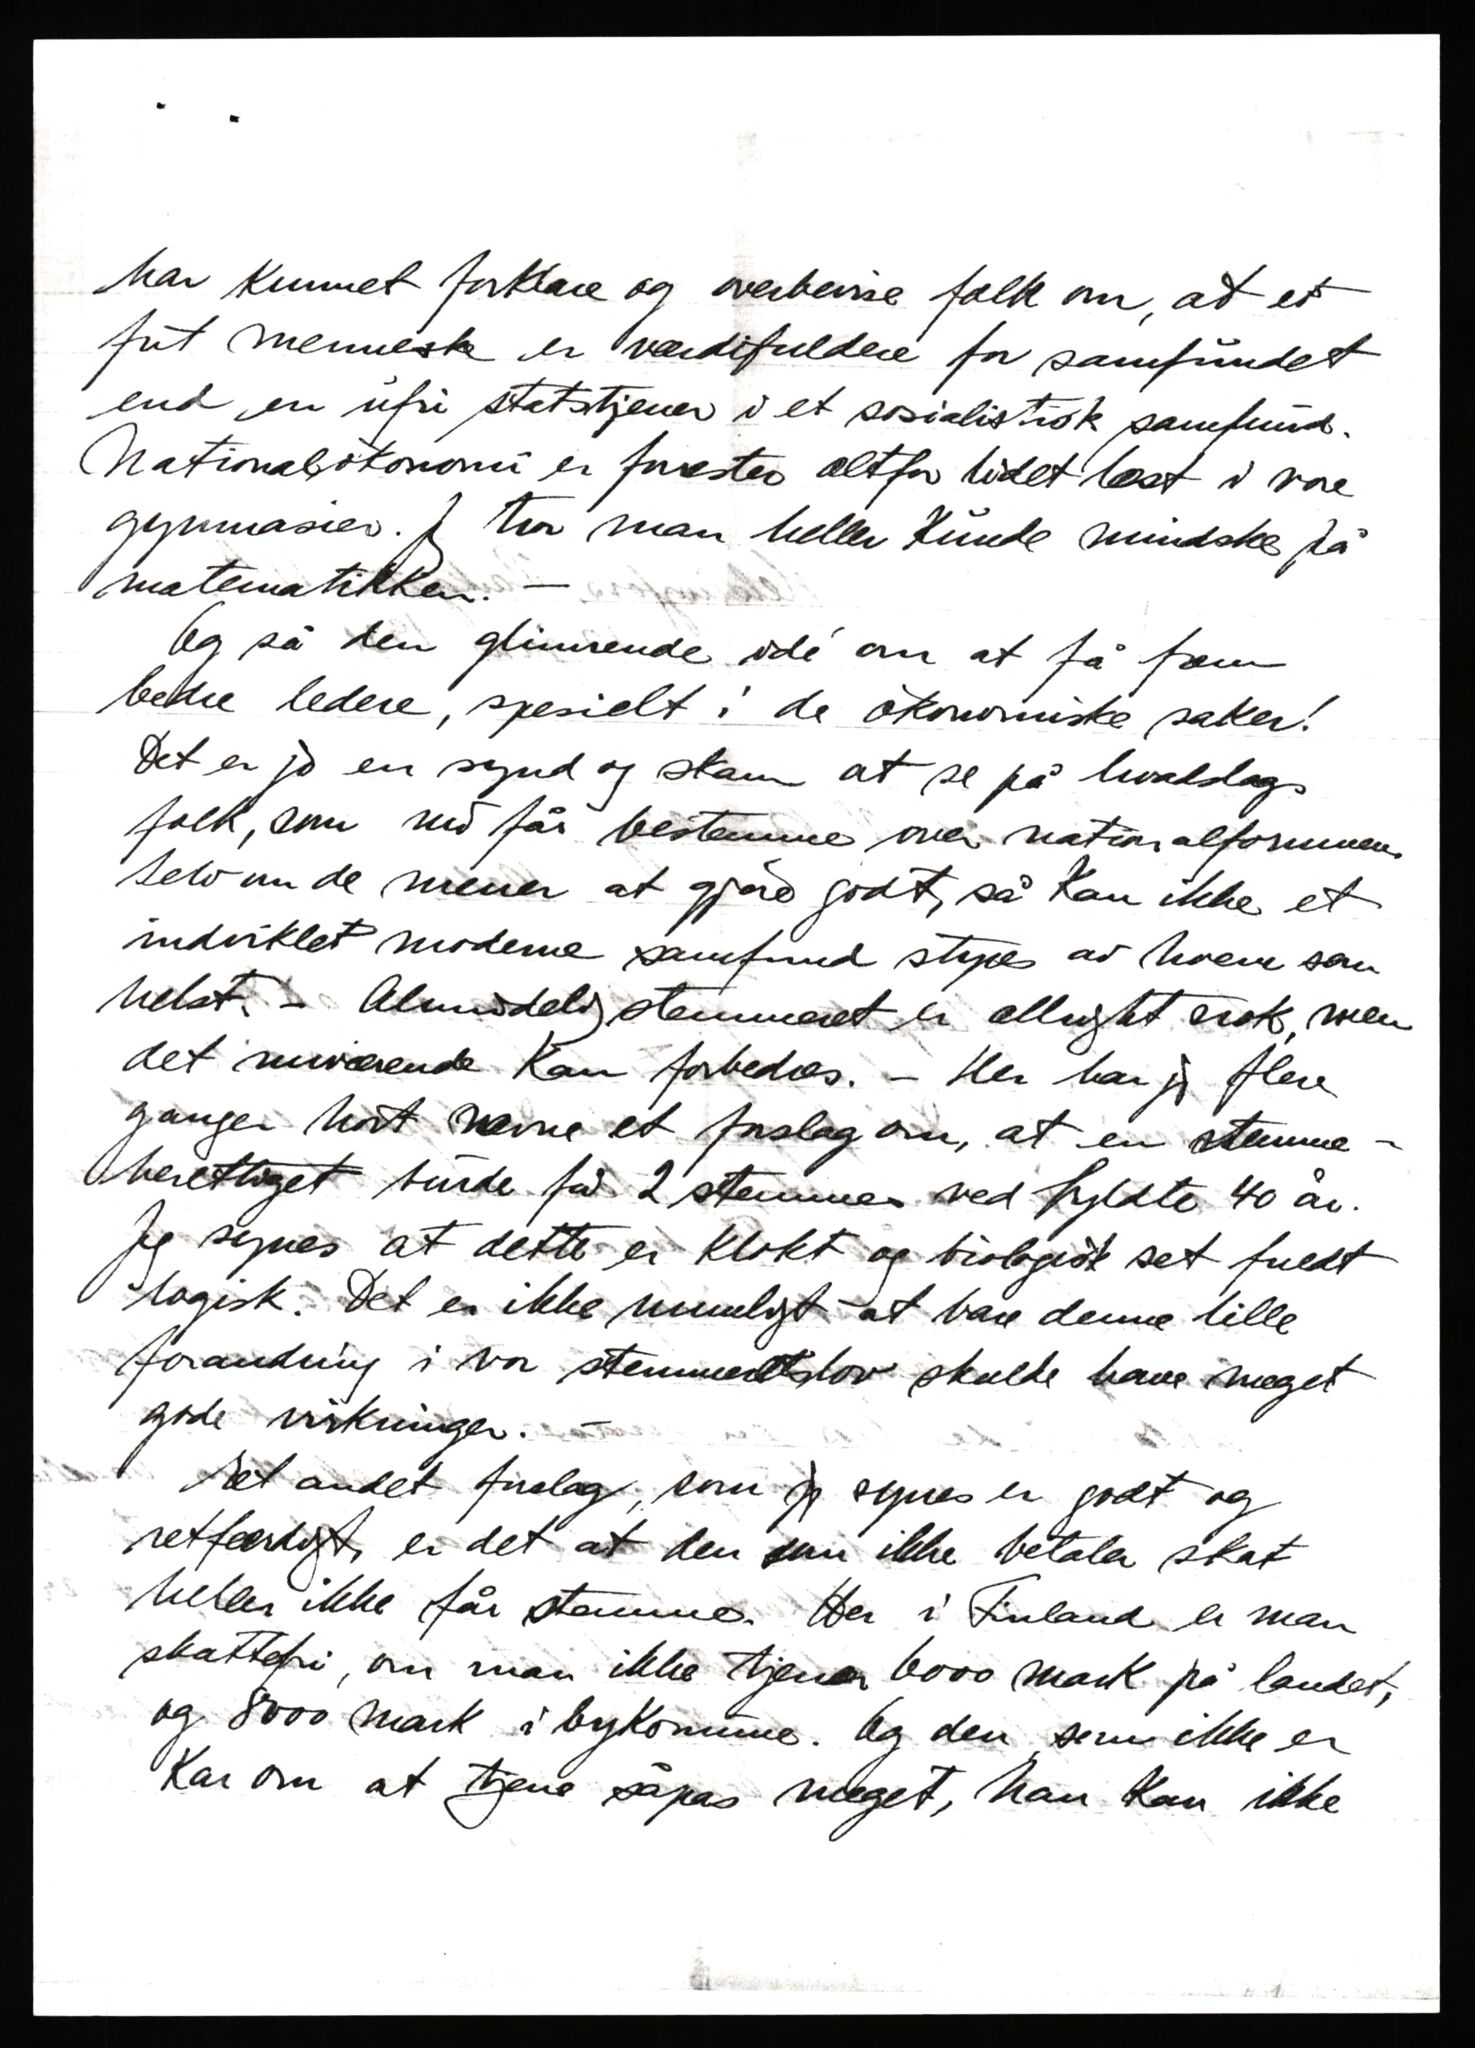 har kunnet forklare og overbevise folk om, at et
frit menneske er værdifuldere for samfundet
end en ufri statstjener i et sosialistisk samfund.
Nationaløkonomi er forresten altfor lidet læst i vore
gymnasier. Jeg tror man heller kunde mindske på
matematikken. —
Og så den glimrende idé om at få frem
bedre ledere, spesielt i de økonomiske saker!
Det er jo en synd og skam at se på hvadslags
folk, som nu får bestemme over nationalformuen.
Selv om de mener at gjøre godt, så kan ikke et
indviklet moderne samfund styres av hvem som
helst. – Almindelig stemmeret er allright nok, men
det nuværende kan forbedres. – Her har jeg flere
ganger hørt nævne et forslag om, at en stemme-
berettiget burde få 2 stemmer ved fyldte 40 år.
Jeg synes at dette er klokt og biologisk set fuldt
logisk. Det er ikke umuligt at bare denne lille
forandring i vor stemmeretslov skulde have meget
gode virkninger. –
Et andet forslag, som jeg synes er godt og
retfærdigt, er det at den som ikke betaler skat
heller ikke får stemme. Her i Finland er man
skattefri, om man ikke tjener 6000 mark på landet,
og 8000 mark i bykommune. Og den som ikke er
kar om at tjene såpas meget, han kan ikke